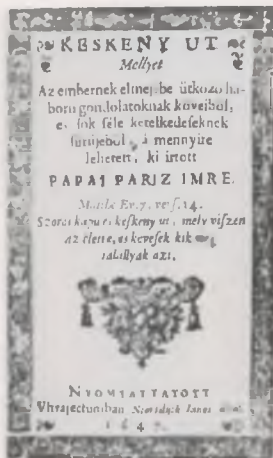 KESKENY UT
Mellyet
Az embernek elméjébe ütközö há-
boru gondolatoknak köveiböl,
es sok féle ketelkedeseknek
, a mennyire
lehetett, ki irtott
PAPAI PARIZ IMRE.
Matth. Ev. 7. vers. 14.
Szoros kapu es keskeny ut, mely viszen
az életre, es kevesek kik meg
talallyak azt.
NYOMTATTATOTT
Vltrajectumban
1647